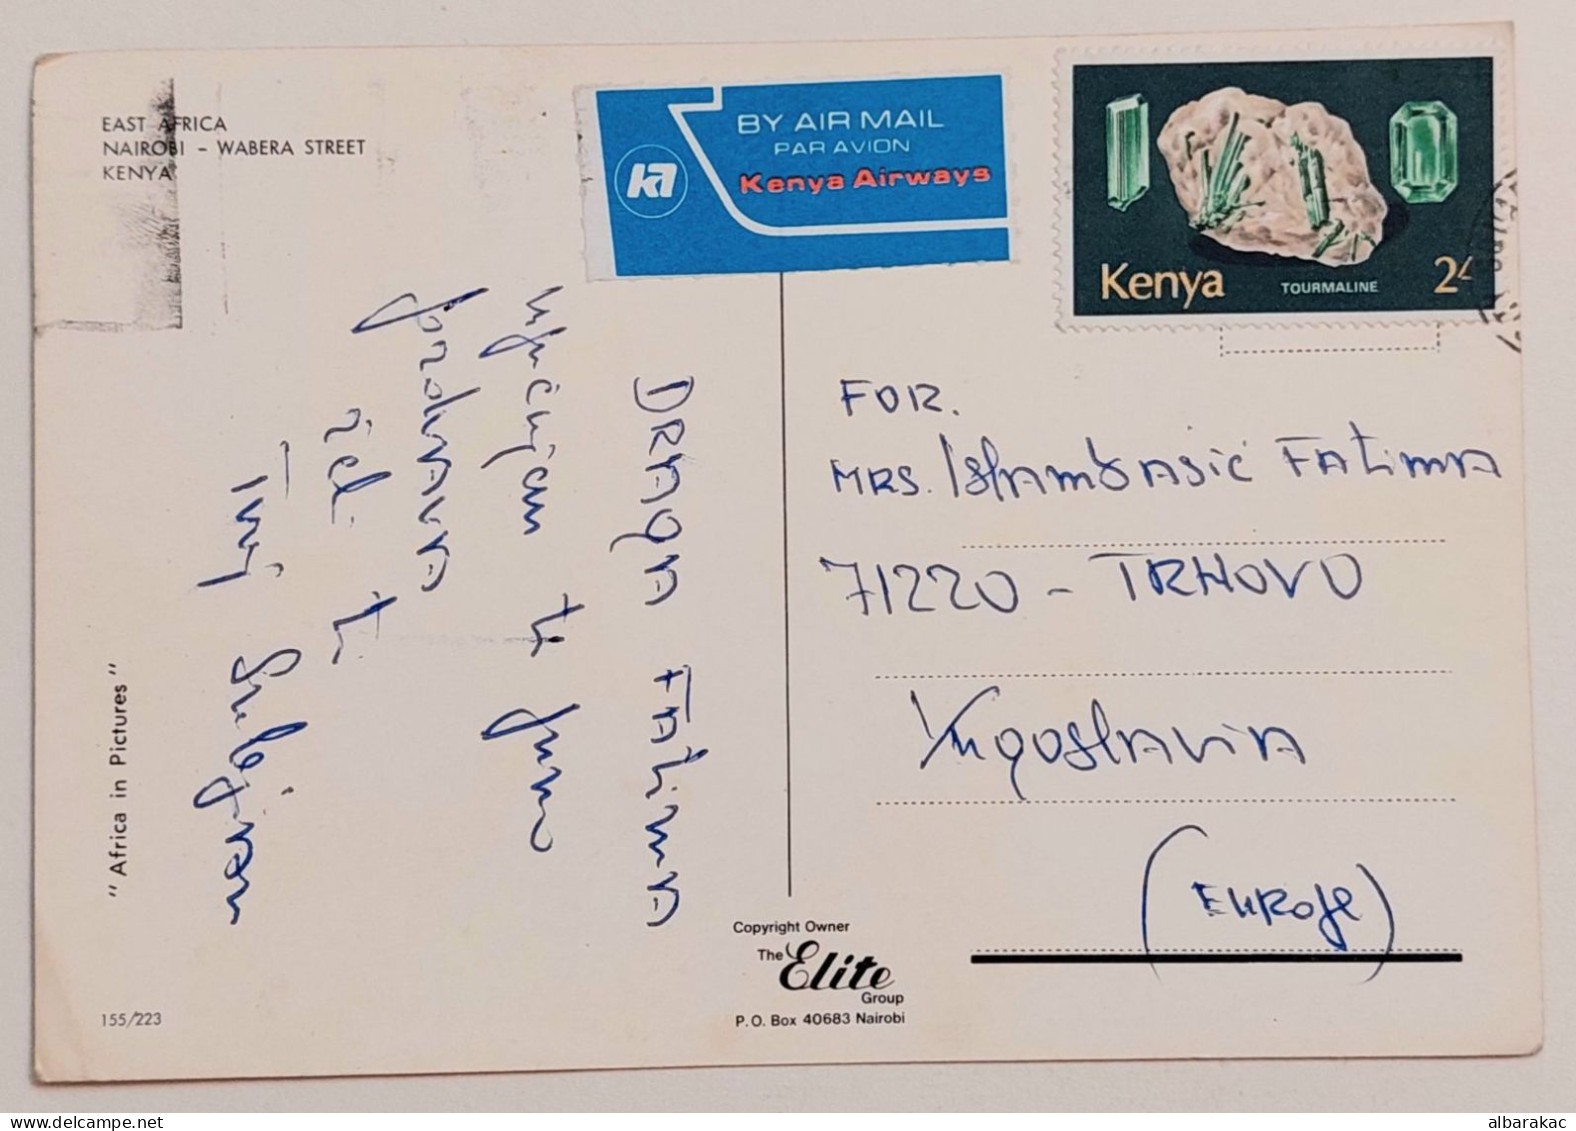 EAST AFRICA
NAIROBI - WABERA STREET
KENYA
BY AIR MAIL
PAR AVION
Kenya Airways
Kenya
TOURMALINE
2/
DRAgA FAtimA
te
te
Tvoj Sulejman
FOR.
MRS. IslAmbAsić FAtimA
71220 - TRNOVO
YugoslAviA
(EUROPE)
"Africa in Pictures"
155/223
Copyright Owner
The Elite
Group
P.O. Box 40683 Nairobi
albarakac